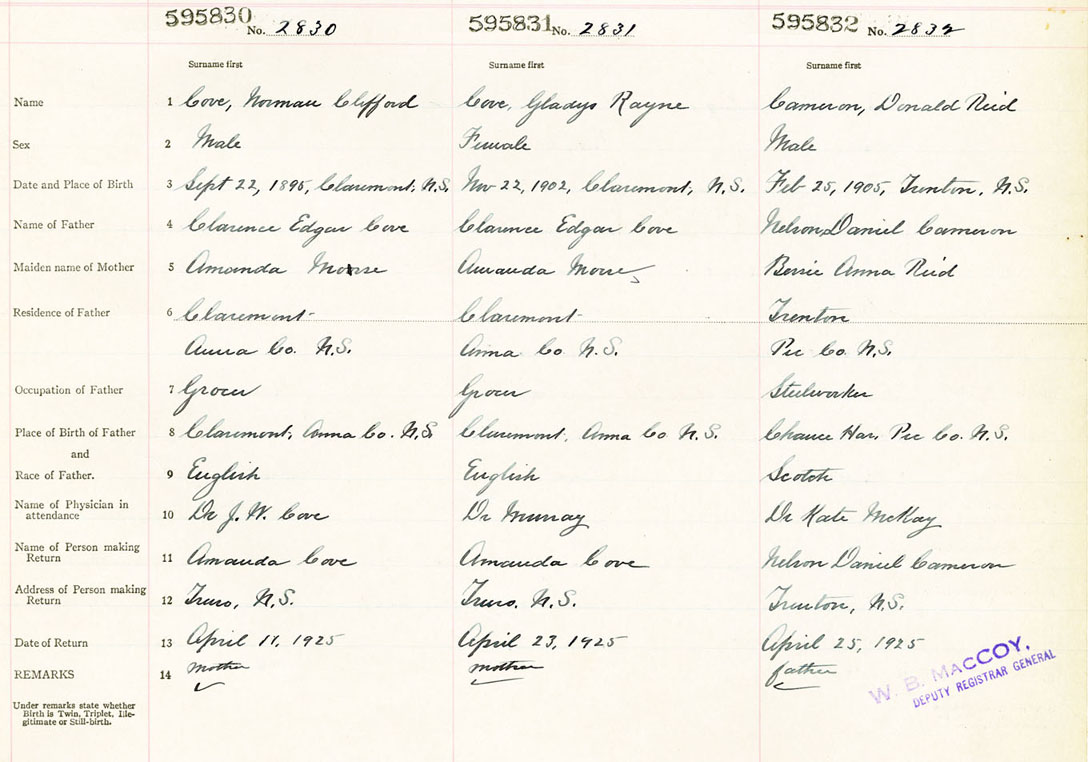 595830 No. 2830 595831 No. 2831 595832 No. 2832
Surname first Surname first Surname first
Name 1 Cove, Norman Clifford Cove, Gladys Rayne Cameron, Donald Reid
Sex 2 Male Female Male
Date and Place of Birth 3 Sept 22, 1895, Claremont, N.S. Nov 22, 1902, Claremont, N.S. Feb 25, 1905, Trenton, N.S.
Name of Father 4 Clarence Edgar Cove Clarence Edgar Cove Nelson Daniel Cameron
Maiden name of Mother 5 Amanda Morse Amanda Morse Anna Reid
Residence of Father 6 Claremont Claremont Trenton
Anna Co. N.S. Anna Co. N.S. Pic Co. N.S.
Occupation of Father 7 Grocer Grocer Steelworker
Place of Birth of Father 8 Claremont, Anna Co. N.S. Claremont, Anna Co N.S. Chance Har, Pic Co. N.S.
and
Race of Father. 9 English English Scotch
Name of Physician in
attendance 10 Dr J. W. Cove Dr Murray Dr Kate McKay
Name of Person making
Return 11 Amanda Cove Amanda Cove Nelson Daniel Cameron
Address of Person making
Return 12 Truro, N.S. Truro, N.S. Trenton, N.S.
Date of Return 13 April 11, 1925 April 23, 1925 April 25, 1925
REMARKS 14 mother mother father
W. B. MACCOY,
DEPUTY REGISTRAR GENERAL
Under remarks state whether
Birth is Twin, Triplet, Ille-
gitimate or Still-birth.